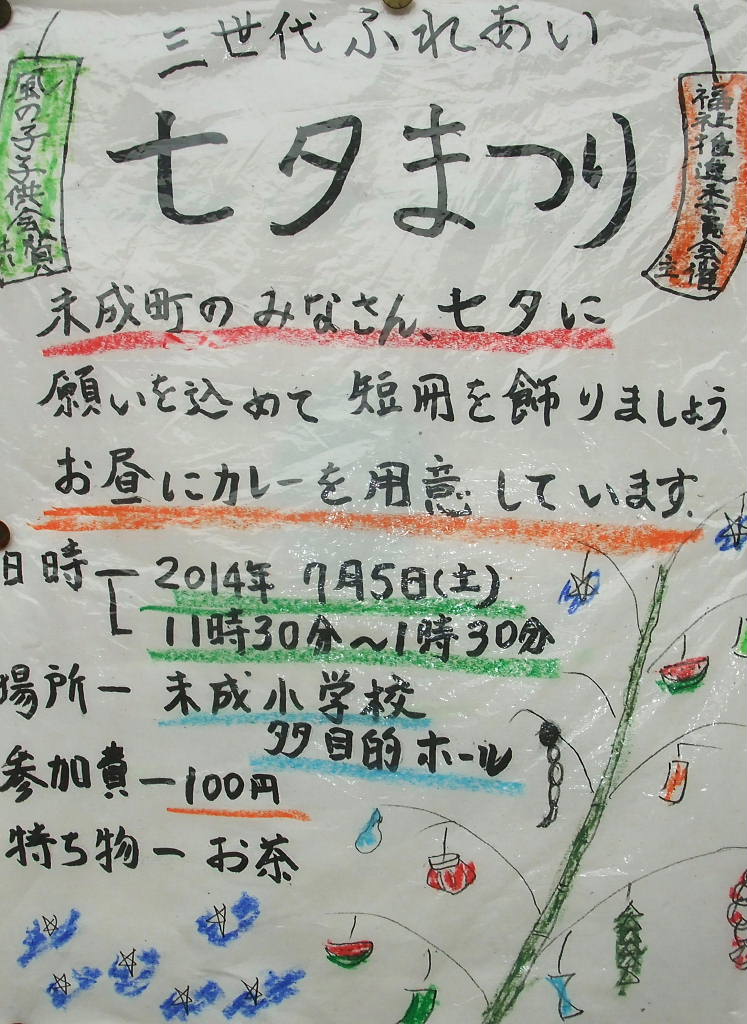 三世代ふれあい
七夕まつり
風の子子供会
福祉推進委員会
主催
末成町のみなさん、七夕に
願いを込めて 短冊を飾りましょう.
お昼にカレーを用意しています.
日時 2014年 7月5日(土)
11時30分～1時30分
場所ー 末成小学校
多目的ホール
参加費ー100円
持ち物ー お茶